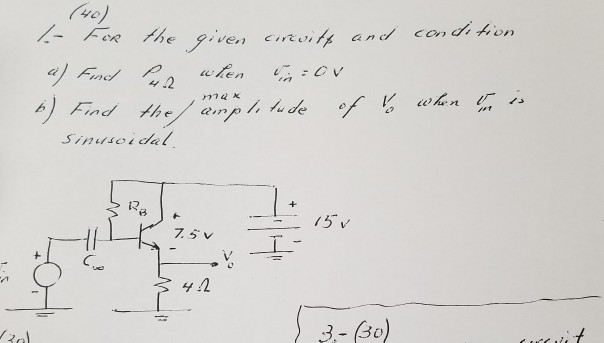 (40)
1.- FOR the given circuits and condition
a) Find P4Ω when Vin = 0V
b) Find the/ max amplitude of Vo when Vin is
sinusoidal.
RB
+
7.5 V
-
+
15 V
-
+
-
in
C∞
Vo
4 Ω
(30)
3.- (30)
circuit